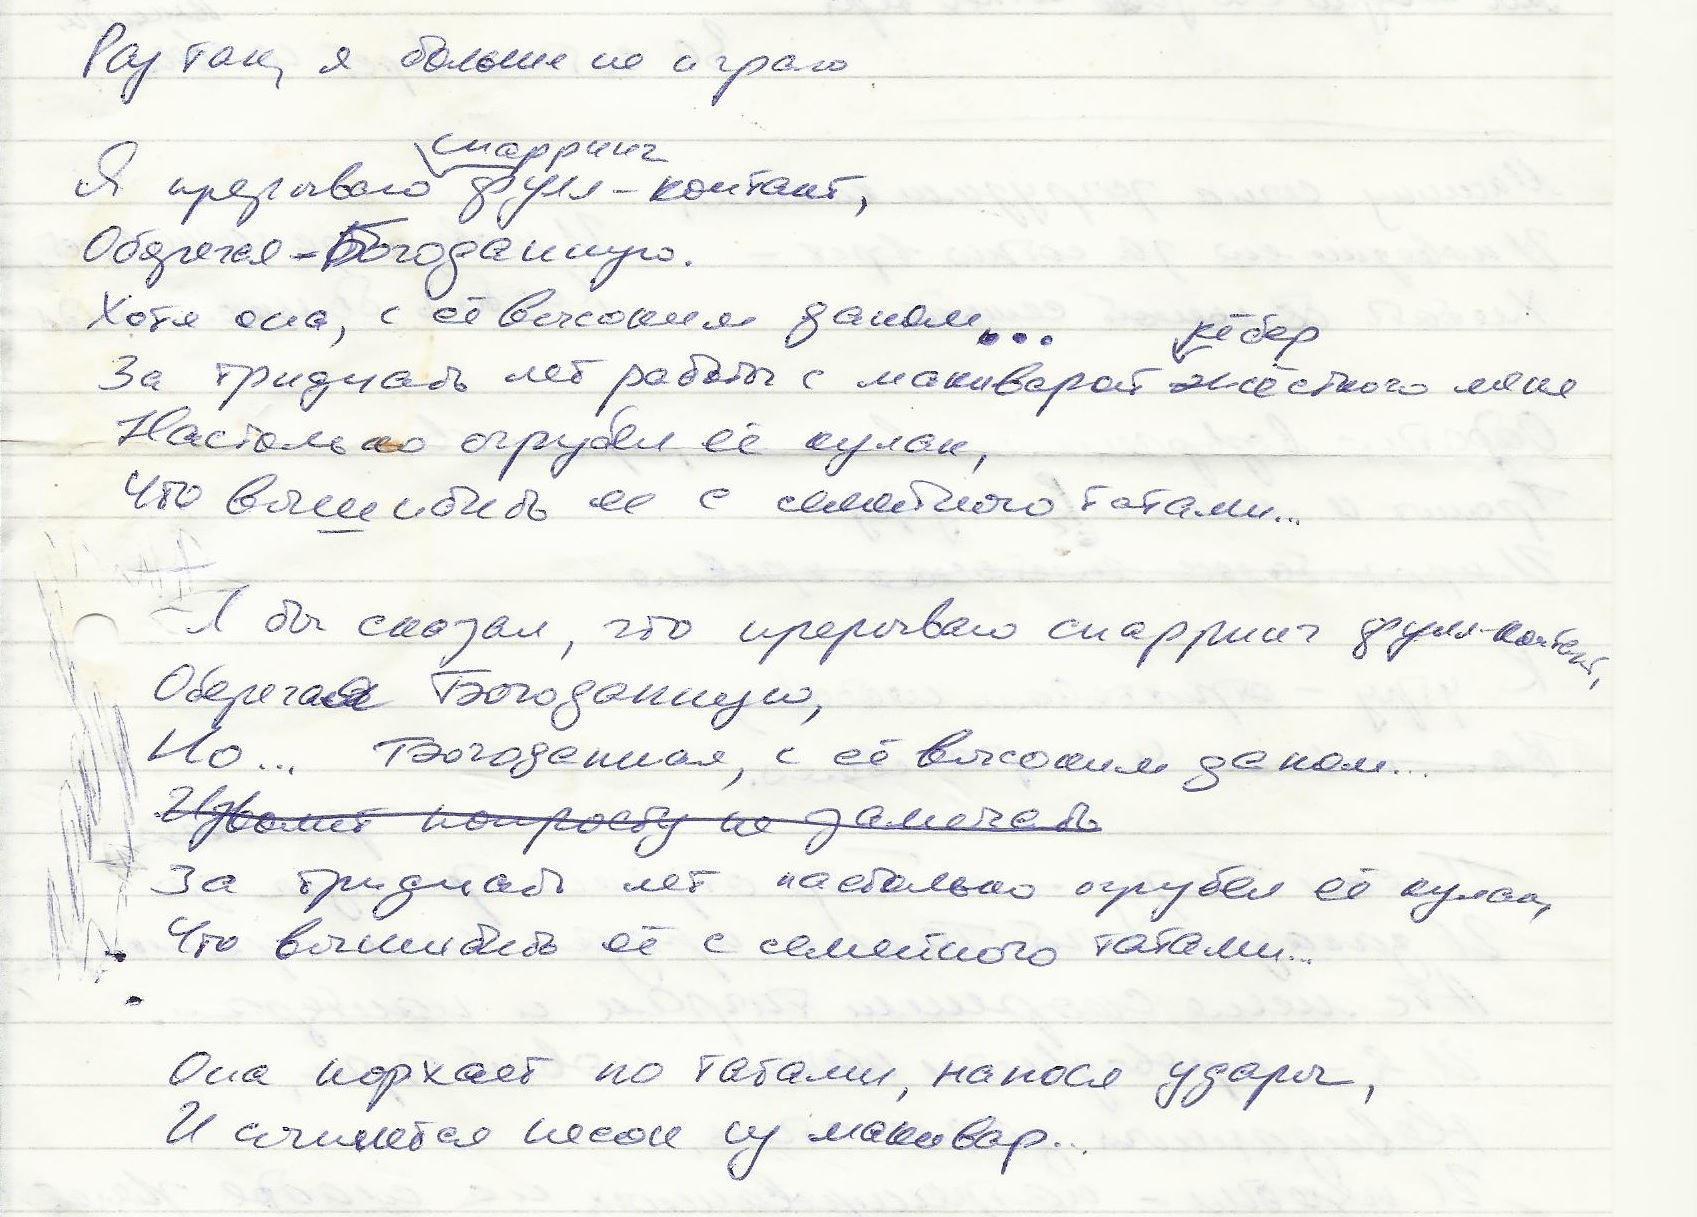 Раз так, я больше не играю
Я прерываю спарринг фулл-контакт,
Оберегая Богоданную.
Хотя она, с её высоким даном...
За тридцать лет работы с макиварой жёсткого меня
рёбер
Настолько огрубел её кулак,
Что вышибить ее с семейного татами...
Я бы сказал, что прерываю спарринг фулл-контакт,
Оберегая Богоданную,
Но... Богоданная, с её высоким даном...
Изволит попросту не замечать
За тридцать лет настолько огрубел её кулак,
Что вышибить её с семейного татами...
Она порхает по татами, нанося удары,
И сыплется песок из макивар...